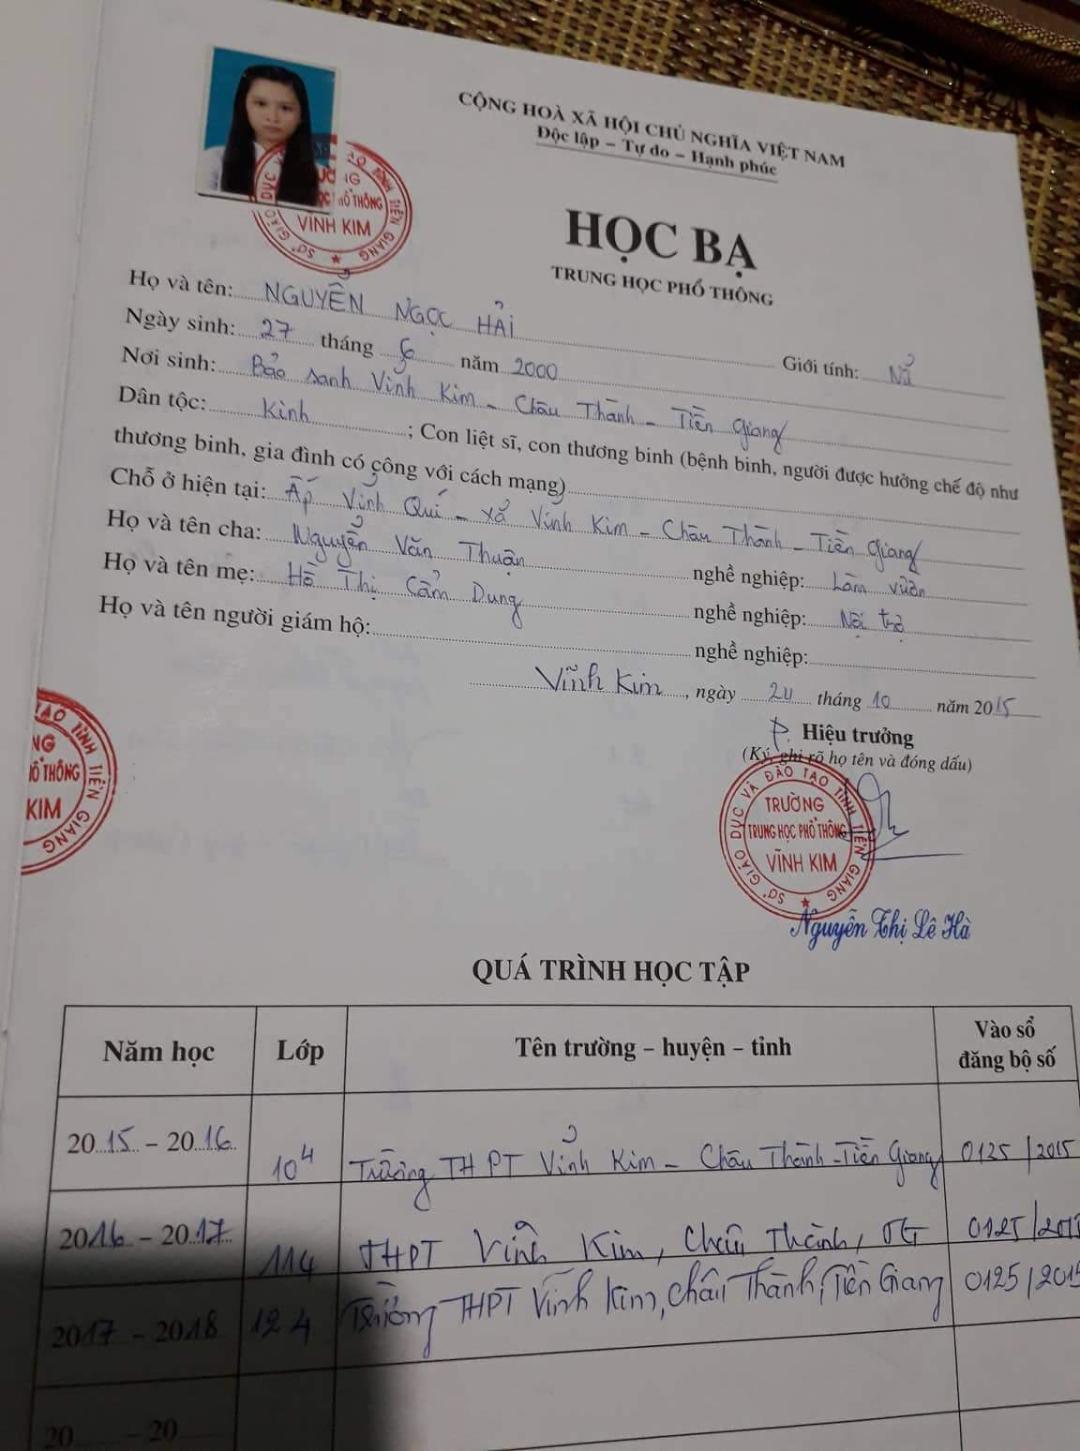 CỘNG HOÀ XÃ HỘI CHỦ NGHĨA VIỆT NAM
Độc lập – Tự do – Hạnh phúc
HỌC BẠ
TRUNG HỌC PHỔ THÔNG
VĨNH KIM
Họ và tên: NGUYỄN NGỌC HẢI
Giới tính: Nữ
Ngày sinh: 27 tháng 6 năm 2000
Nơi sinh: Bảo sanh Vĩnh Kim – Châu Thành – Tiền Giang
Dân tộc: Kinh ; Con liệt sĩ, con thương binh (bệnh binh, người được hưởng chế độ như
thương binh, gia đình có công với cách mạng)
Chỗ ở hiện tại: Ấp Vĩnh Quí – xã Vĩnh Kim – Châu Thành – Tiền Giang
Họ và tên cha: Nguyễn Văn Thuận nghề nghiệp: Làm vườn
Họ và tên mẹ: Hồ Thị Cẩm Dung nghề nghiệp: Nội trợ
Họ và tên người giám hộ: nghề nghiệp:
Vĩnh Kim, ngày 24 tháng 10 năm 2015
P. Hiệu trưởng
(Ký, ghi rõ họ tên và đóng dấu)
SỞ GIÁO DỤC VÀ ĐÀO TẠO TỈNH TIỀN GIANG
TRƯỜNG
TRUNG HỌC PHỔ THÔNG
VĨNH KIM
Nguyễn Thị Lê Hà
QUÁ TRÌNH HỌC TẬP
Năm học Lớp Tên trường – huyện – tỉnh Vào sổ đăng bộ số
2015 – 2016 10 4 Trường THPT Vĩnh Kim – Châu Thành – Tiền Giang 0125/2015
2016 – 2017 114 THPT Vĩnh Kim, Châu Thành, TG
2017 – 2018 12 4 Trường THPT Vĩnh Kim, Châu Thành, Tiền Giang 0125/2015
20 – 20